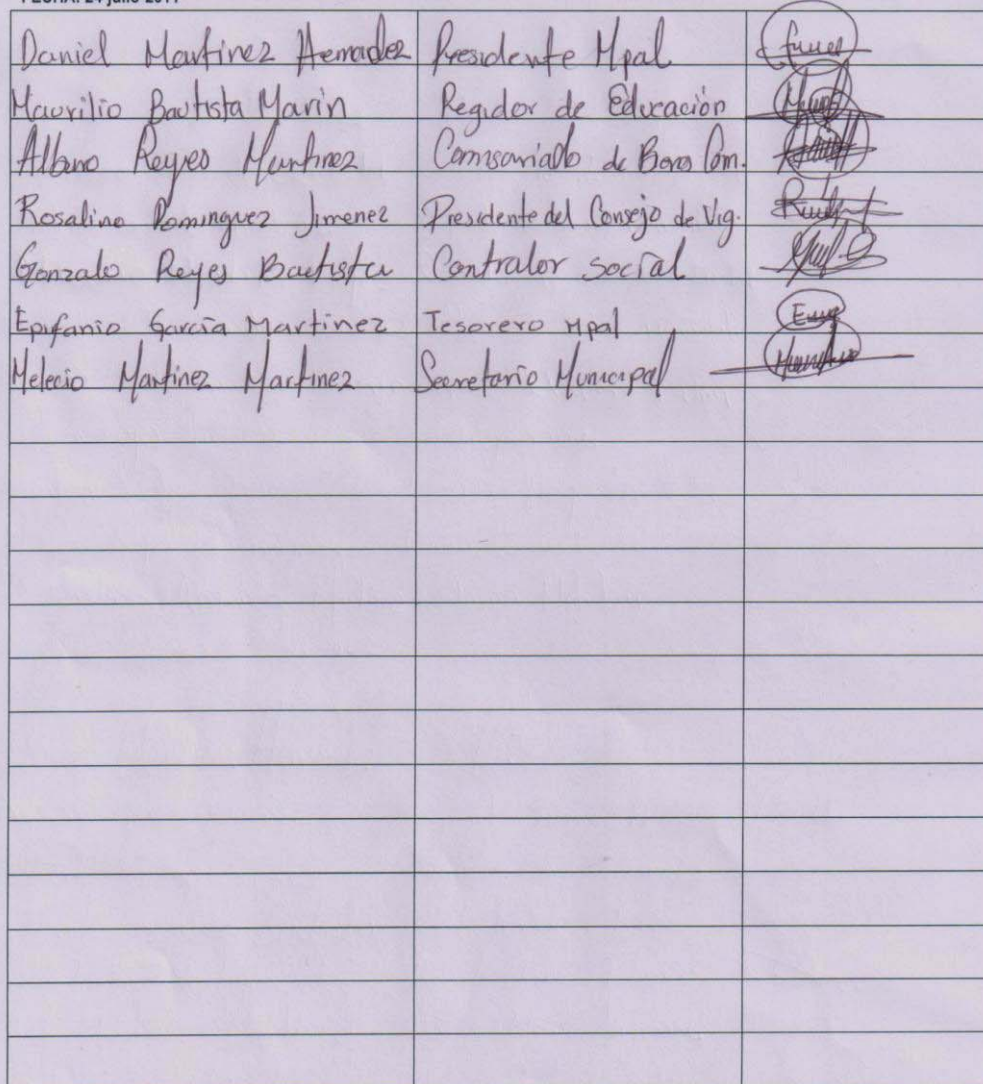 FECHA: 24 julio 2011
Daniel Martinez Hernadez Presidente Mpal
Maurilio Bautista Marin Regidor de Educación
Albano Reyes Martinez Comisariado de Bienes Com.
Rosalino Dominguez Jimenez Presidente del Consejo de Vig.
Gonzalo Reyes Bautista Contralor social
Epifanio García Martinez Tesorero Mpal
Melecio Martinez Martinez Secretario Municipal